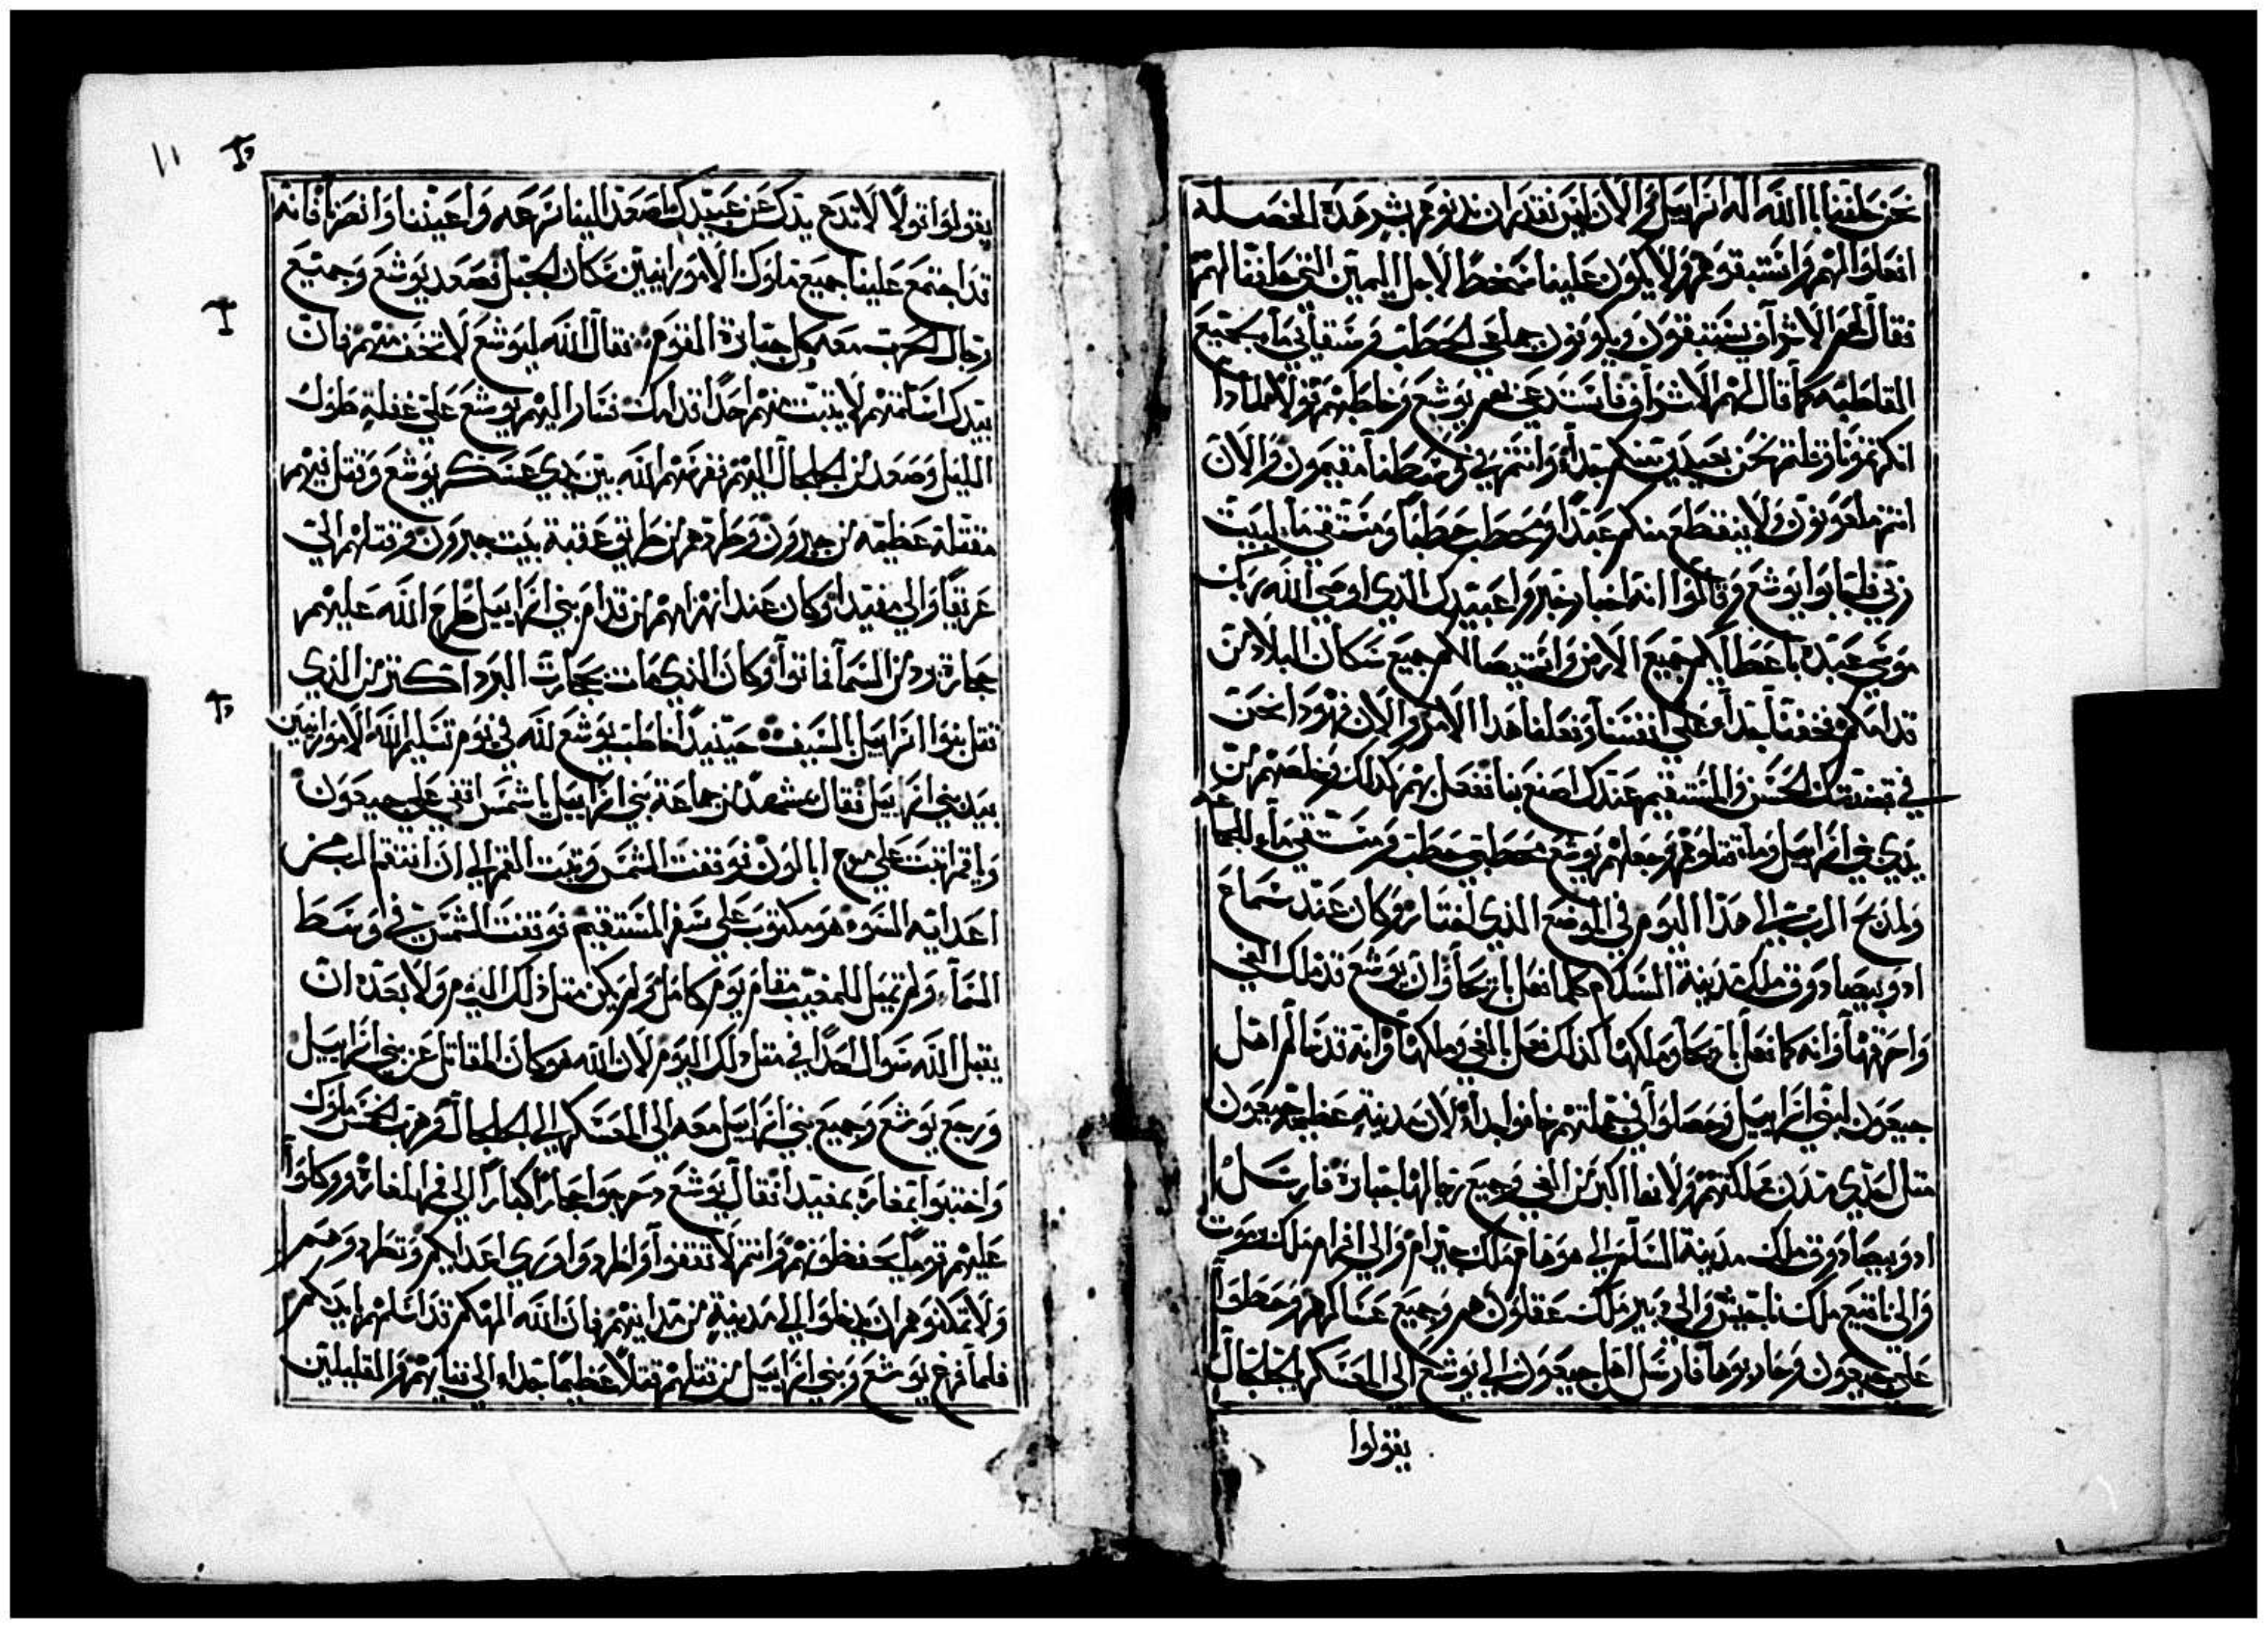 نحن حلفنا باالله اله اسراييل والان ليس نقدر ان ندنو منهم بشر هذه الخصله
افعلوا لهم واستبقوهم ولا يكون علينا سخط لاجل اليمين التي حلفنا لهم
فقال لهم الاشراف يستبقون ويكونون جماعي الحطب ومستقايي ما بجميع
القاطبه كما قال لهم الاشراف فاستدعى بهم يوشع وخاطبهم قولا لمادا
انكرتمونا وقلتم نحن بعيدين منكم جدا وانتم في وسطنا مقيمون والان
انتم ملعونون ولا ينقطع منكم عبدا ومحطب حطبا ومستقي ما لبيت
ربي فاجابوا يوشع وقالوا انه اخبار خبروا عبيدك الذي اوصي الله ربك
موسي عبده باعطايكم جميع الارض واستيصالكم جميع سكان البلاد من
قدامكم فخفنا جدا علي انفسنا وفعلنا هدا الامر والان هودا نحن
في قبضتك الحسن والمستقيم عندك اصنع بنا ففعل بهم كدلك وخلصهم من
يدي بني اسراييل وما قتلوهم وجعلهم يوشع محطبي حطب ومستقي ماء للجماعه
ولمدبح الرب الي هدا اليوم في الموضع الذي اختاره وكان عند سماع
ادونيصادوق ملك مدينة السلام كما فعل باريحا وان يوشع قد ملك الغي
واحرقها وانه كما فعل باريحا وملكها كذلك فعل بالغي وملكها وانه قد سالم اهل
جبعون لبني اسراييل وحصلوا في جملتهم خافوا جدا لان مدينة عظيمه جبعون
متل احدي مدن مملكتهم ولانها اكبر من الغي وجميع رجالها جبابرة فارسل
ادونيصادوق ملك مدينة السلم الي هوهام ملك حبرام والي افرام ملك يرموت
والي نافيع ملك ناحيش والي دبير ملك عقلون هم وجميع عساكرهم وحطوا
علي جبعون وحاربوها فارسل اهل جبعون الي يوشع الي المعسكر الجلجال
يقولوا
يقولوا قولا لا تدع يدك عن عبيدك اصعد الينا سرعه واعيننا وانصرنا فانه
قد اجتمع علينا جميع ملوك الامورانيين سكان الجبل فصعد يوشع وجميع
رجال الحرب معه وكل جبابرة القوم فقال الله ليوشع لا تخف منهم فان
بيدك اسلمتهم لا يتبت منهم احدا قدامك فسار اليهم يوشع علي غفلة طول
الليل وصعد من الجلجال اليهم فهزمهم الله بين يدي عسكر يوشع وقتل فيهم
مقتلة عظيمه من جبرون وطردهم من طريق عقبة بيت جبرون وقتلهم الي
عزيقا والي مقيدا وكان عند انهزامهم من قدام بني اسراييل طرح الله عليهم
حجارة برد من السما فماتوا وكان الذي مات بحجارت البرد اكتر من الذي
قتل بنوا اسراييل بالسيف حينيدا خاطب يوشع لله في يوم تسليم الله الامورانيين
بيد بني اسراييل فقال بمشهد من جماعة بني اسراييل يا شمس اقفي علي جبعون
ويا قمر اتبت علي مرج ايالون فوقفت الشمس وتبت القمر الي ان انتقم الرب من
اعدايه السوه هو مكتوب علي سفر المستقيم فوقفت الشمس في وسط
السما ولم تميل للمغيب مقام يوم كامل ولم يكن متل دلك اليوم ولا بعده ان
يقبل الله سوال احدا في متل دلك اليوم لان الله هو كان المقاتل عن بني اسراييل
ورجع يوشع وجميع بني اسراييل معه الي المعسكر الي الجلجال وهربوا الخمس ملوك
واختبوا بمغارة بمقيدا فقال يوشع دحرجوا حجارا كبارا الي فم المغارة ووكلوا
عليهم قوما يحفظونهم وانتم لا تقفوا واطردوا وري اعدايكم وتطردوهم
ولا تمكنوهم ان يدخلوا الي مدينة من مداينهم فان الله الهكم قد اسلمهم بايديكم
فلما فرغ يوشع وبني اسراييل من قتلهم قتلا عظيما جدا الي فنايهم والقليلين